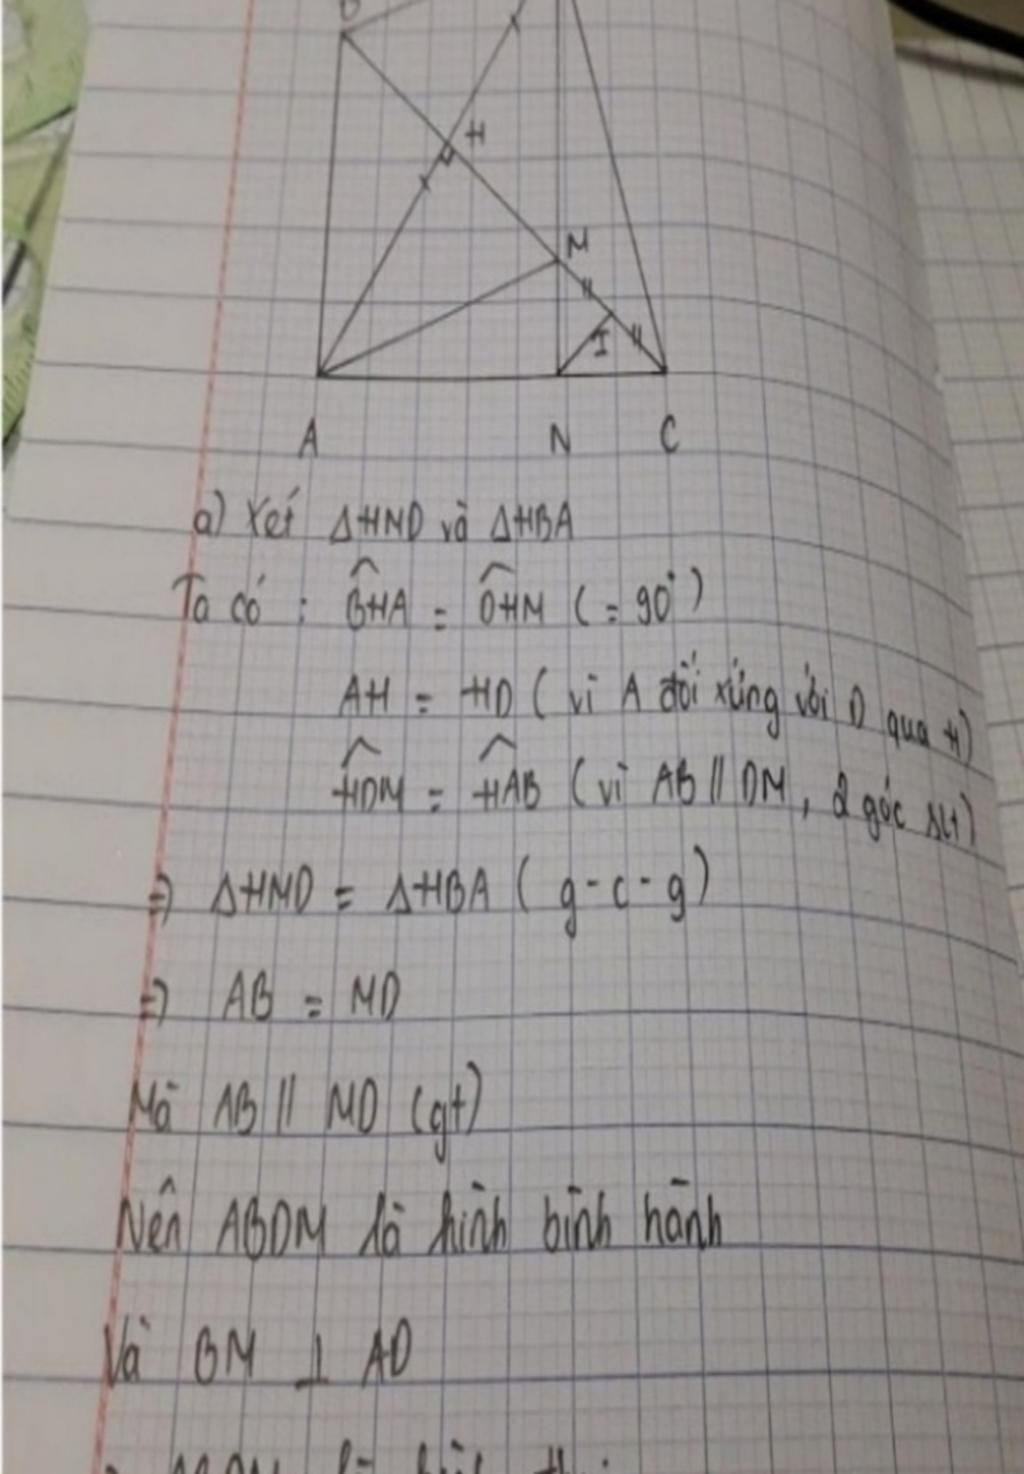 B
H
M
I
A N C
a) Xét ΔHND và ΔHBA
Ta có : BHA = DHM ( = 90° )
AH = HD ( vì A đối xứng với D qua H)
HDM = HAB ( vì AB // DM , 2 góc slt)
=> ΔHMD = ΔHBA ( g - c - g )
=> AB = MD
Mà AB // MD (gt)
Nên ABDM là hình bình hành
Và BM ⊥ AD